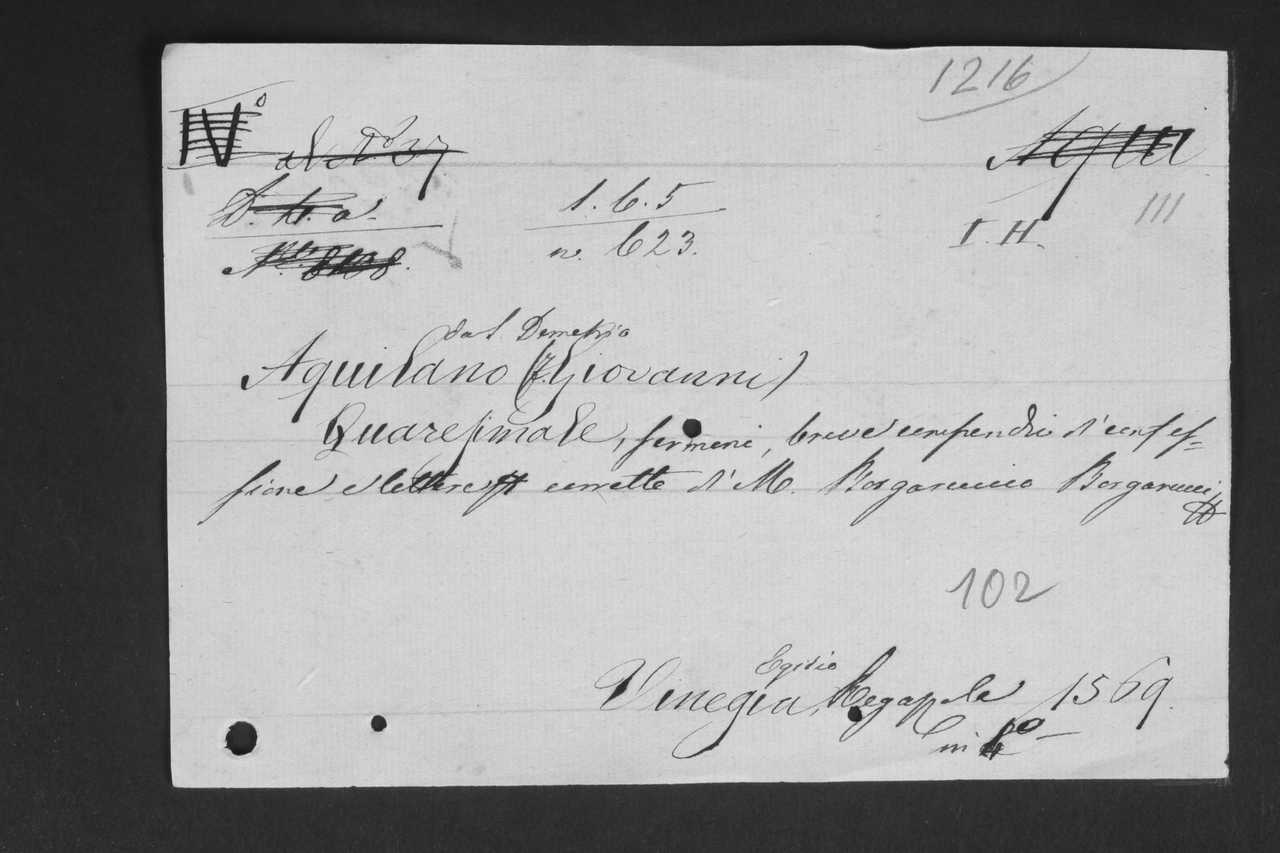 1216
IV°
1.6.5
I. H.
III
n. 623.
dal Demetrio
Aquilano (f. Giovanni)
Quaresimale, sermoni, breve compendio d' confes=
sione e lettere corrette d' M. Borgaruccio Borgarucci
102
Egidio
Vinegia, Regazola 1569.
in